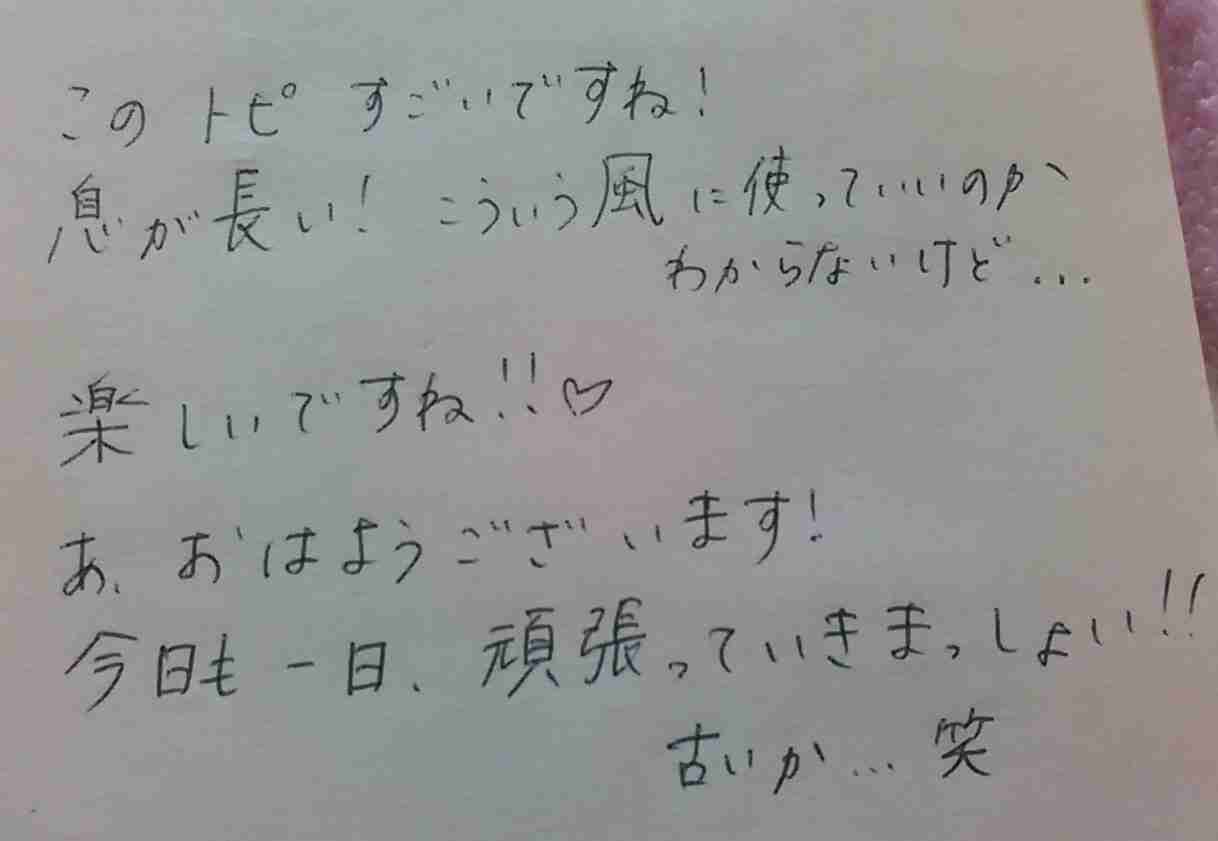 このトピすごいですね!
息が長い! こういう風に使っていいのか
わからないけど...
楽しいですね!!♡
あ、おはようございます!
今日も一日、頑張っていきまっしょい!!
古いか...笑